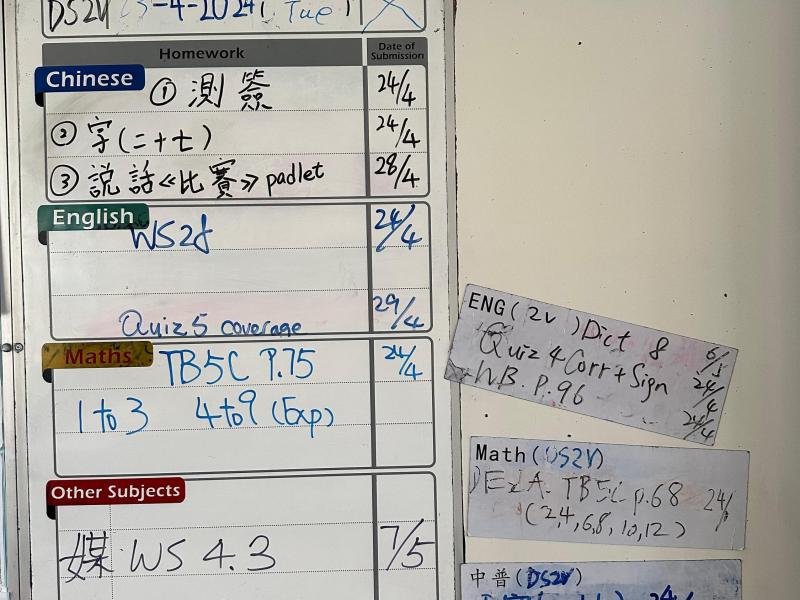 DS2V 23-4-2024 ( Tue )
Homework Date of Submission
Chinese ① 測簽 24/4
② 字(二十七) 24/4
③ 說話《比賽》padlet 28/4
English WS28 24/4
Quiz 5 coverage 29/4
Maths TB5C P.75 24/4
1 to 3 4 to 9 (Exp)
Other Subjects
媒 WS 4.3 7/5
ENG( 2V )Dict 8 6/5
Quiz 4 Corr + Sign 24/4
WB. P.96 24/4
Math(DS2V)
TB5C p.68 24/
(2,4,6,8,10,12)
中普(DS2V)